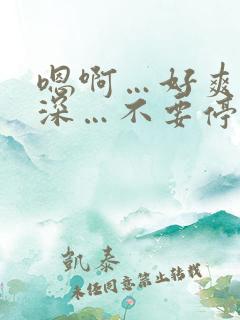 嗯啊…好爽
深…不要停
凱泰
未经同意禁止转载